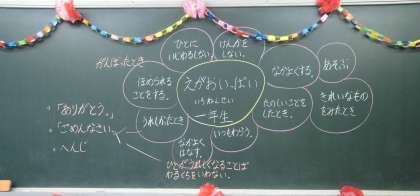 ひとに
いじめをしない。
けんかを
しない。
なかよくする。
あそぶ
がんばったとき
ほめられる
ことをする。
えがおいっぱい
いちねんせい
一年生
たのしいことを
したとき。
きれいなものを
みたとき
うれしかったとき
いつもわらう。
なかよく
はなす。
・「ありがとう。」
・「ごめんなさい。」
・へんじ
ひとがうれしくなることば
わるぐちをいわない。